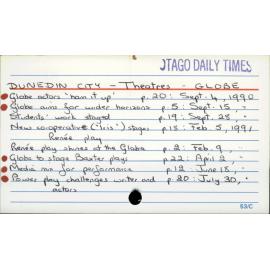 OTAGO DAILY TIMES
DUNEDIN CITY - Theatres - GLOBE
Globe actors 'ham it up' p.20: Sept. 4, 1990
Globe aims for wider horizons p.5: Sept. 15, "
Students' work staged p.19: Sept. 28, "
New co-operative ("Iris") stages p.18: Feb. 5, 1991
Renée play
Renée play shines at the Globe p.2: Feb. 9, "
Globe to stage Baxter plays p.22: April 2, "
Media mn for performance p.12: June 18, "
Power play challenges writer and p.20: July 30, "
actors
53/C